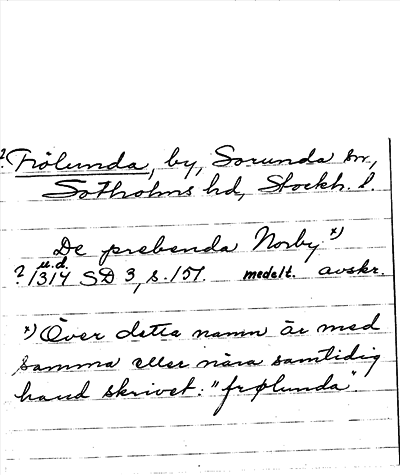 ? Frölunda, by, Sorunda sn,
Sotholms hd, Stockh. l.
De prebenda Norby x)
u.d.
? 1314 SD 3, s. 157. medelt. avskr.
x) Över detta namn är med
samma eller nära samtidig
hand skrivet: "frølunda".